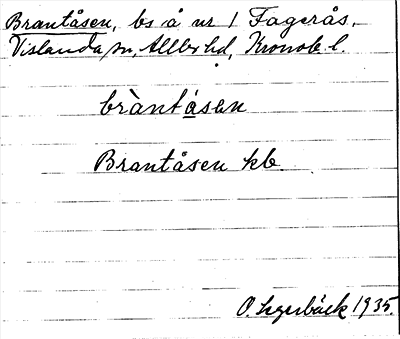 Brantåsen, bs å nr 1 Fagerås,
Vislanda sn, Allbo hd, Kronob. l.
bràntå̀sen
Brantåsen kb.
O. Lyerbäck 1935.